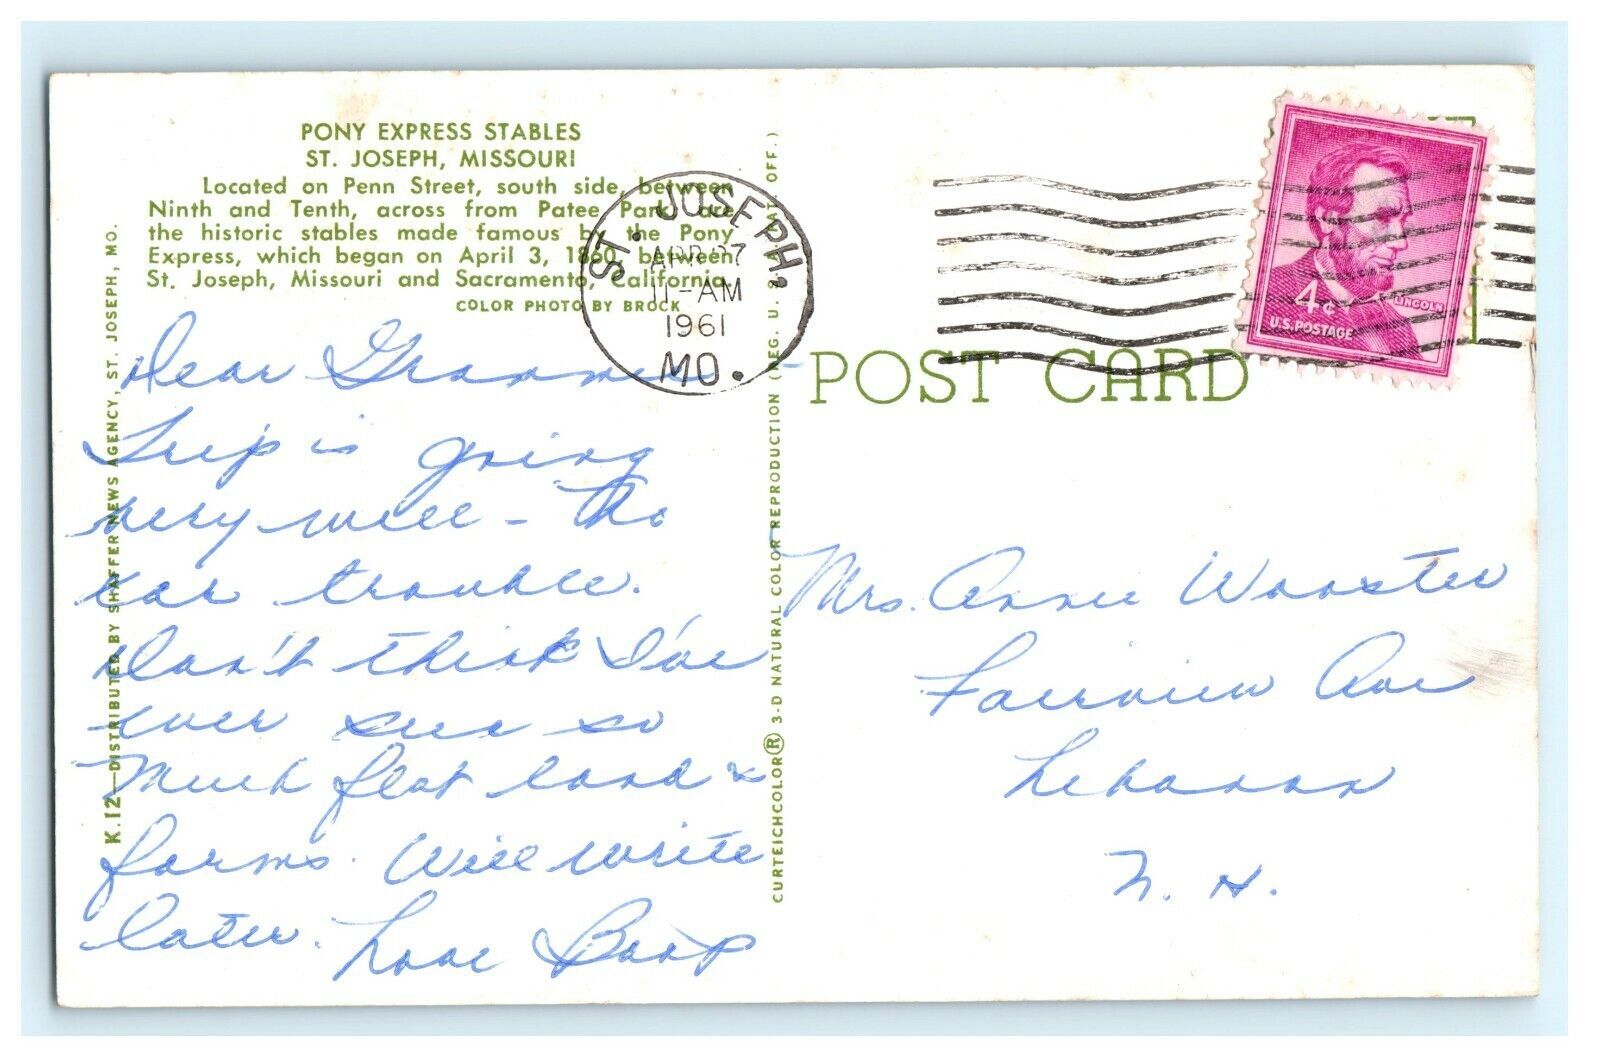 PONY EXPRESS STABLES
ST. JOSEPH, MISSOURI
Located on Penn Street, south side, between
Ninth and Tenth, across from Patee Park are
the historic stables made famous by the Pony
Express, which began on April 3, 1860, between
St. Joseph, Missouri and Sacramento, California.
COLOR PHOTO BY BROCK
K.12—DISTRIBUTED BY SHAFFER NEWS AGENCY, ST. JOSEPH, MO.
Dear
Trip is going
very well - No
car trouble.
Don't think I've
ever see so
Much flat land &
farms. Will write
later. Love Boop
CURTEICHCOLOR® 3-D NATURAL COLOR REPRODUCTION (REG. U. S. PAT. OFF.)
ST. JOSEPH,
APR 27
11-AM
1961
MO.
4¢
LINCOLN
U.S. POSTAGE
POST CARD
Mrs. Annie Wooster
Fairview Ave
Lebanon
N. H.